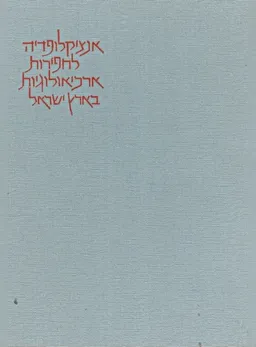 אנציקלופדיה
לחפירות
ארכיאולוגיות
בארץ ישראל